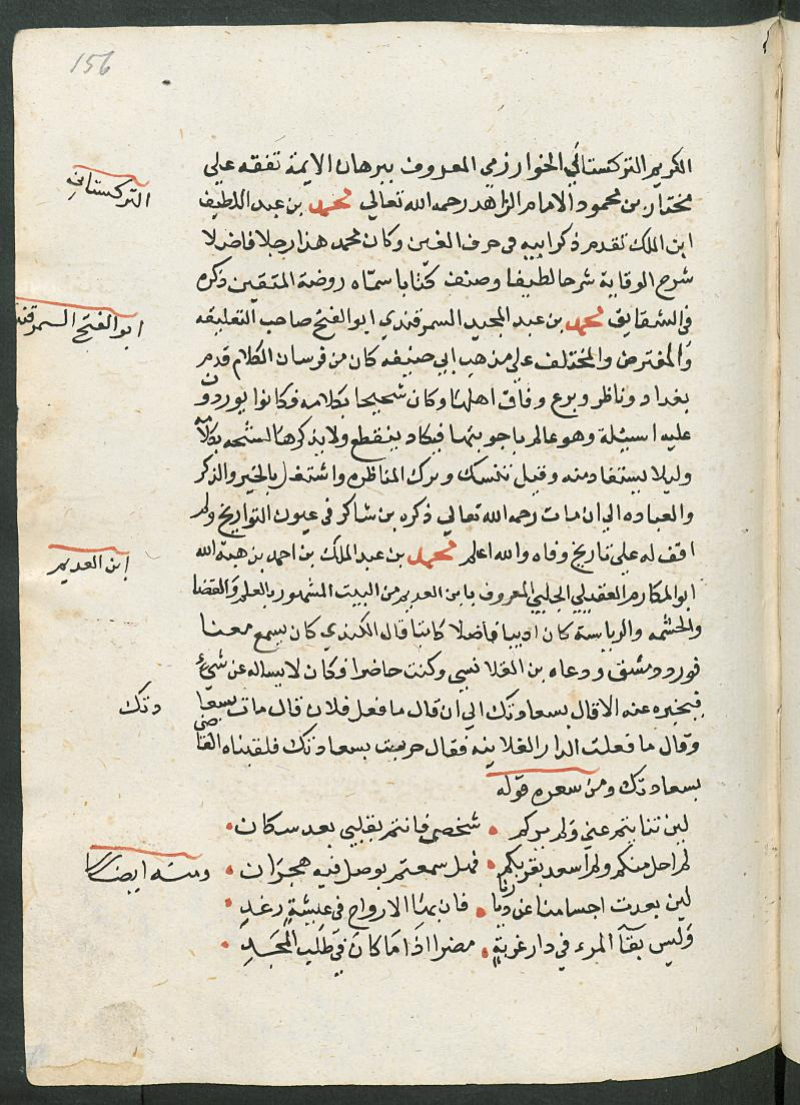 156
الكريم التركستاني الخوارزمي المعروف ببرهان الايمة تفقه علي
التركستاني
مختار بن محمود الامام الزاهد رحمه الله تعالي محمد بن عبد اللطيف
ابن الملك تقدم ذكر ابيه في حرف العين وكان محمد هذا رجلا فاضلا
شرح الوقاية شرحا لطيفا وصنف كتابا سماه روضة المتقين ذكره
في الشقايق محمد بن عبد المجيد السمرقندي ابو الفتح صاحب التعليقه
ابو الفتح السمرقند
والمفترض والمختلف علي مذهب ابي حنيفه كان من فرسان الكلام قدم
بغداد وناظر وبرع وفاق اهلها وكان شحيحا بكلامه فكانوا يوردون
عليه اسيلة وهو عالم باجوبتها فيكاد ينقطع ولا يذكرها لشحه بكلامه
وليلا يستفاد منه وقيل تنسك وترك المناظره واشتغل بالخير والذكر
والعباده الي ان مات رحمه الله تعالي ذكره بن شاكر في عيون التواريخ ولم
اقف له علي تاريخ وفاه والله اعلم محمد بن عبد الملك بن احمد بن هبة الله
ابن العديم
ابو المكارم العقيلي الحلبي المعروف بابن العديم من البيت المشهور بالعلم والقضا
والحشمه والرياسة كان اديبا فاضلا كاتبا قال الكندي كان يسمع معنا
فورد دمشق ودعاه بن القلانسي وكنت حاضرا فكان لا يساله عن شيء
فيخبره عنه الا قال بسعادتك الي ان قال ما فعل فلان قال مات بسعا
دتك
وقال ما فعلت الدار الفلانيه فقال خربت بسعادتك فلقبناه القاضي
بسعادتك ومن شعره قوله
لين تنايتم عني ولم يركم • شخصي فانتم بقلبي بعد سكان •
لم اخل منكم ولم اسعد بقربكم • فهل سمعتم بوصل فيه هجران • ومنه ايضا
لين بعدت اجسامنا عن ديارنا • فان بها الارواح في عيشةٍ رغدِ •
وليس بقآ المرء في دار غربةٍ • مضرا اذا ما كان في طلب المجدِ •